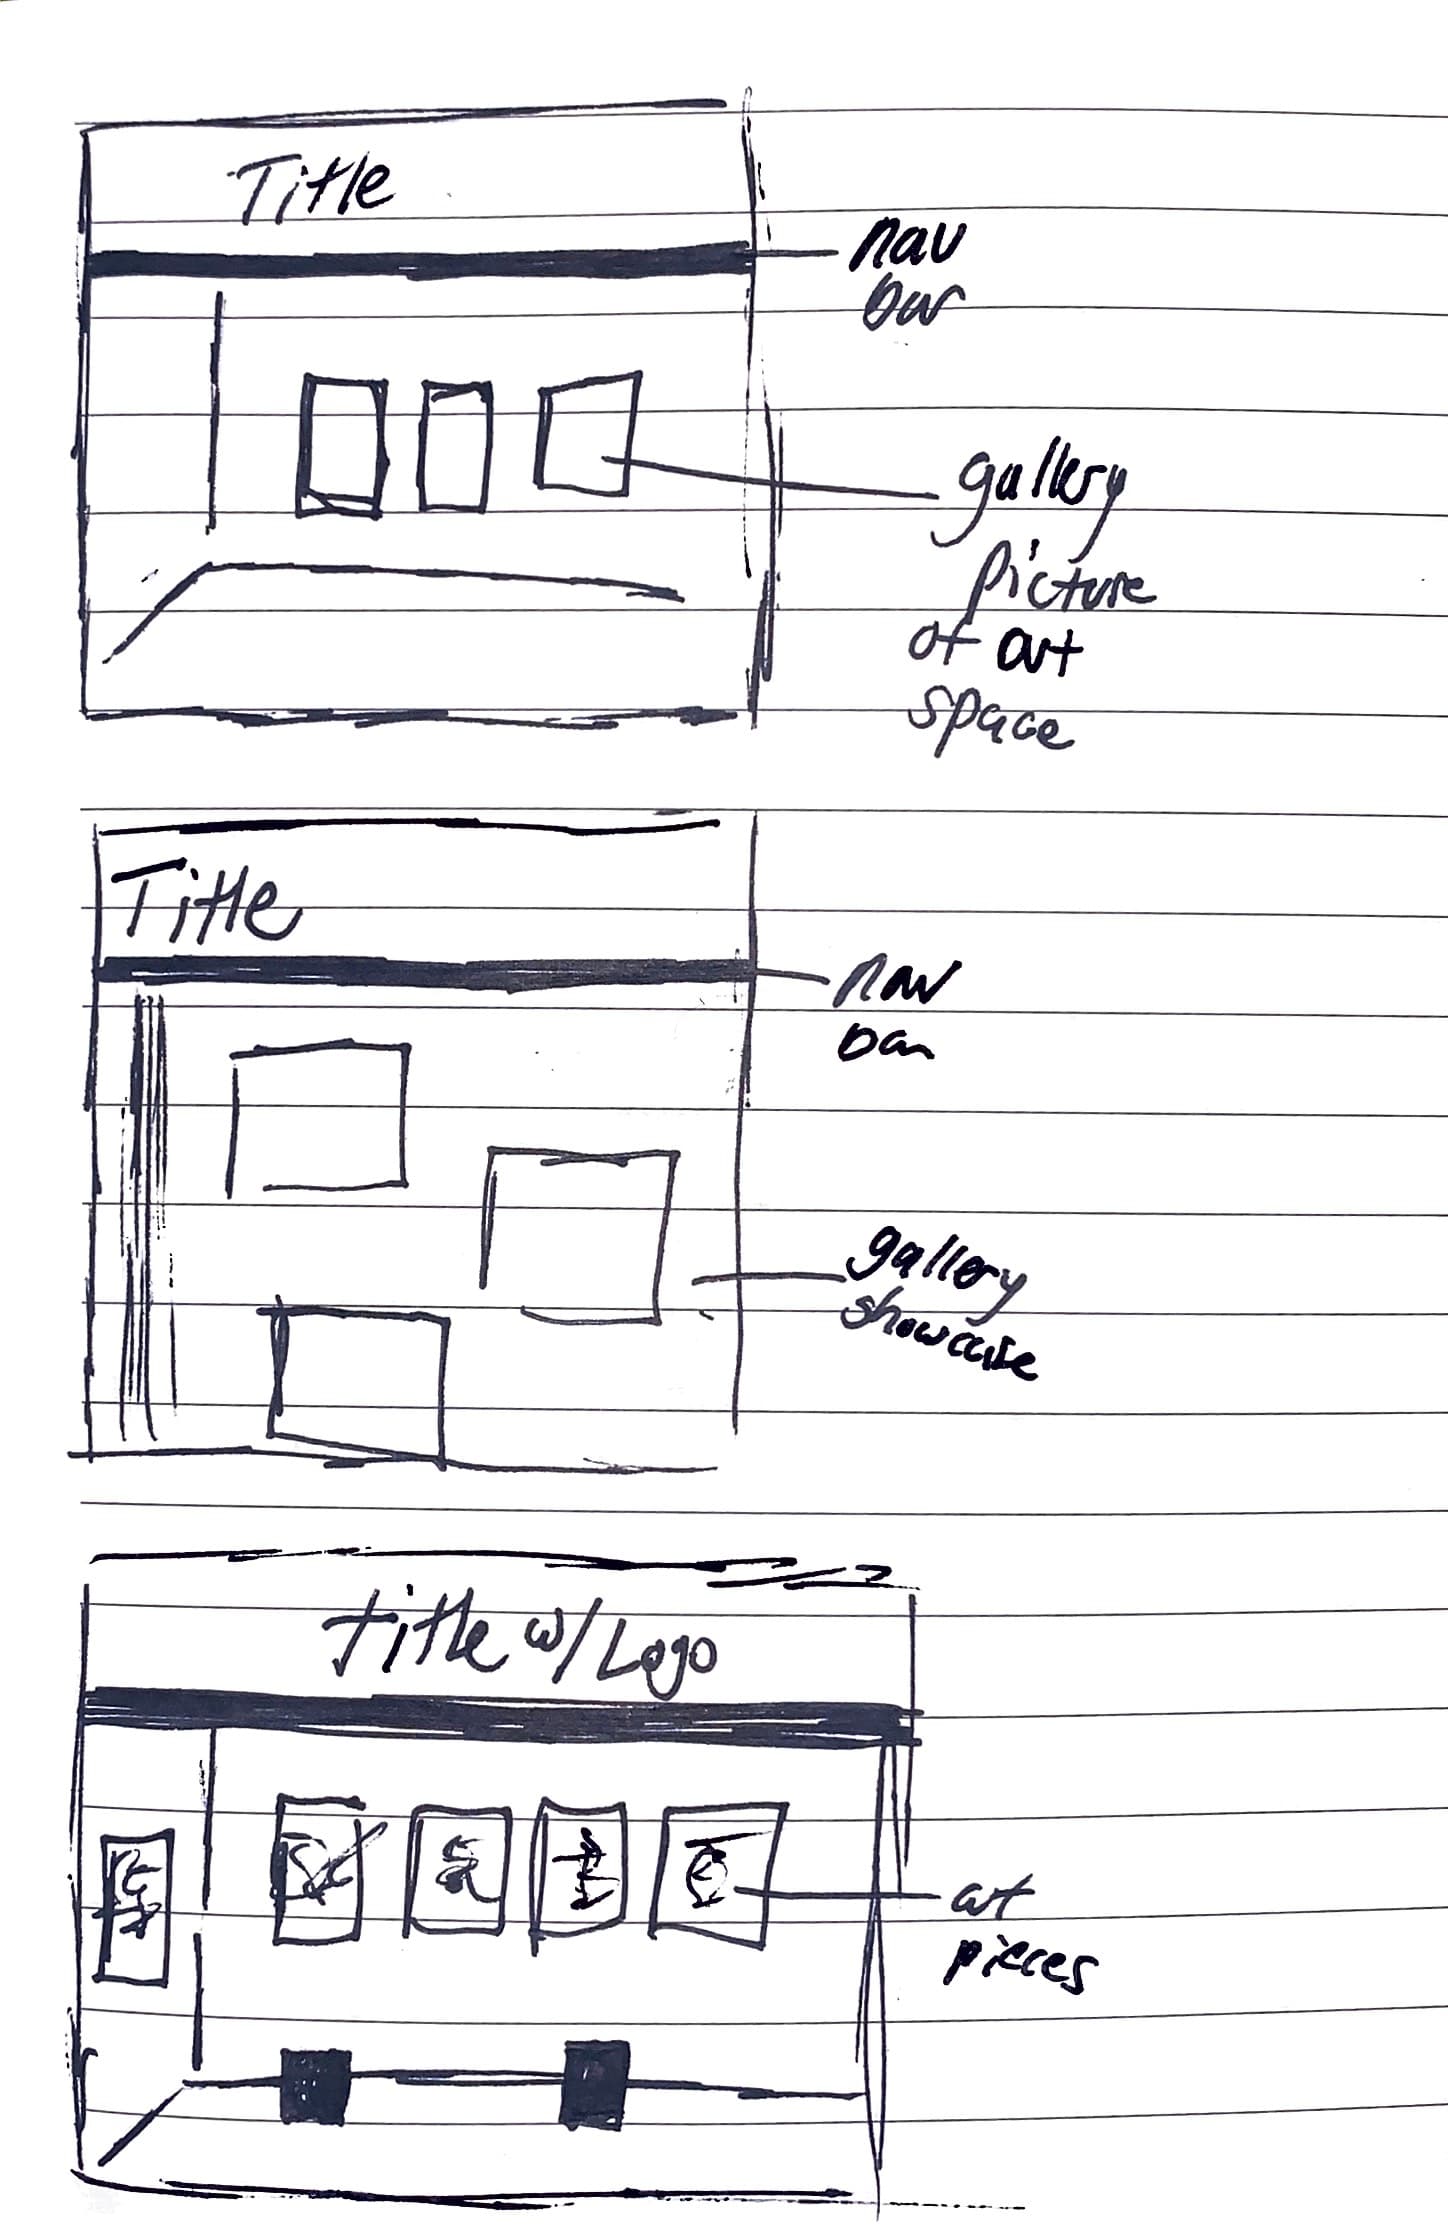 Title
nav
bar
gallery
picture
of art
space
Title
nav
bar
gallery
showcase
title w/ Logo
art
pieces